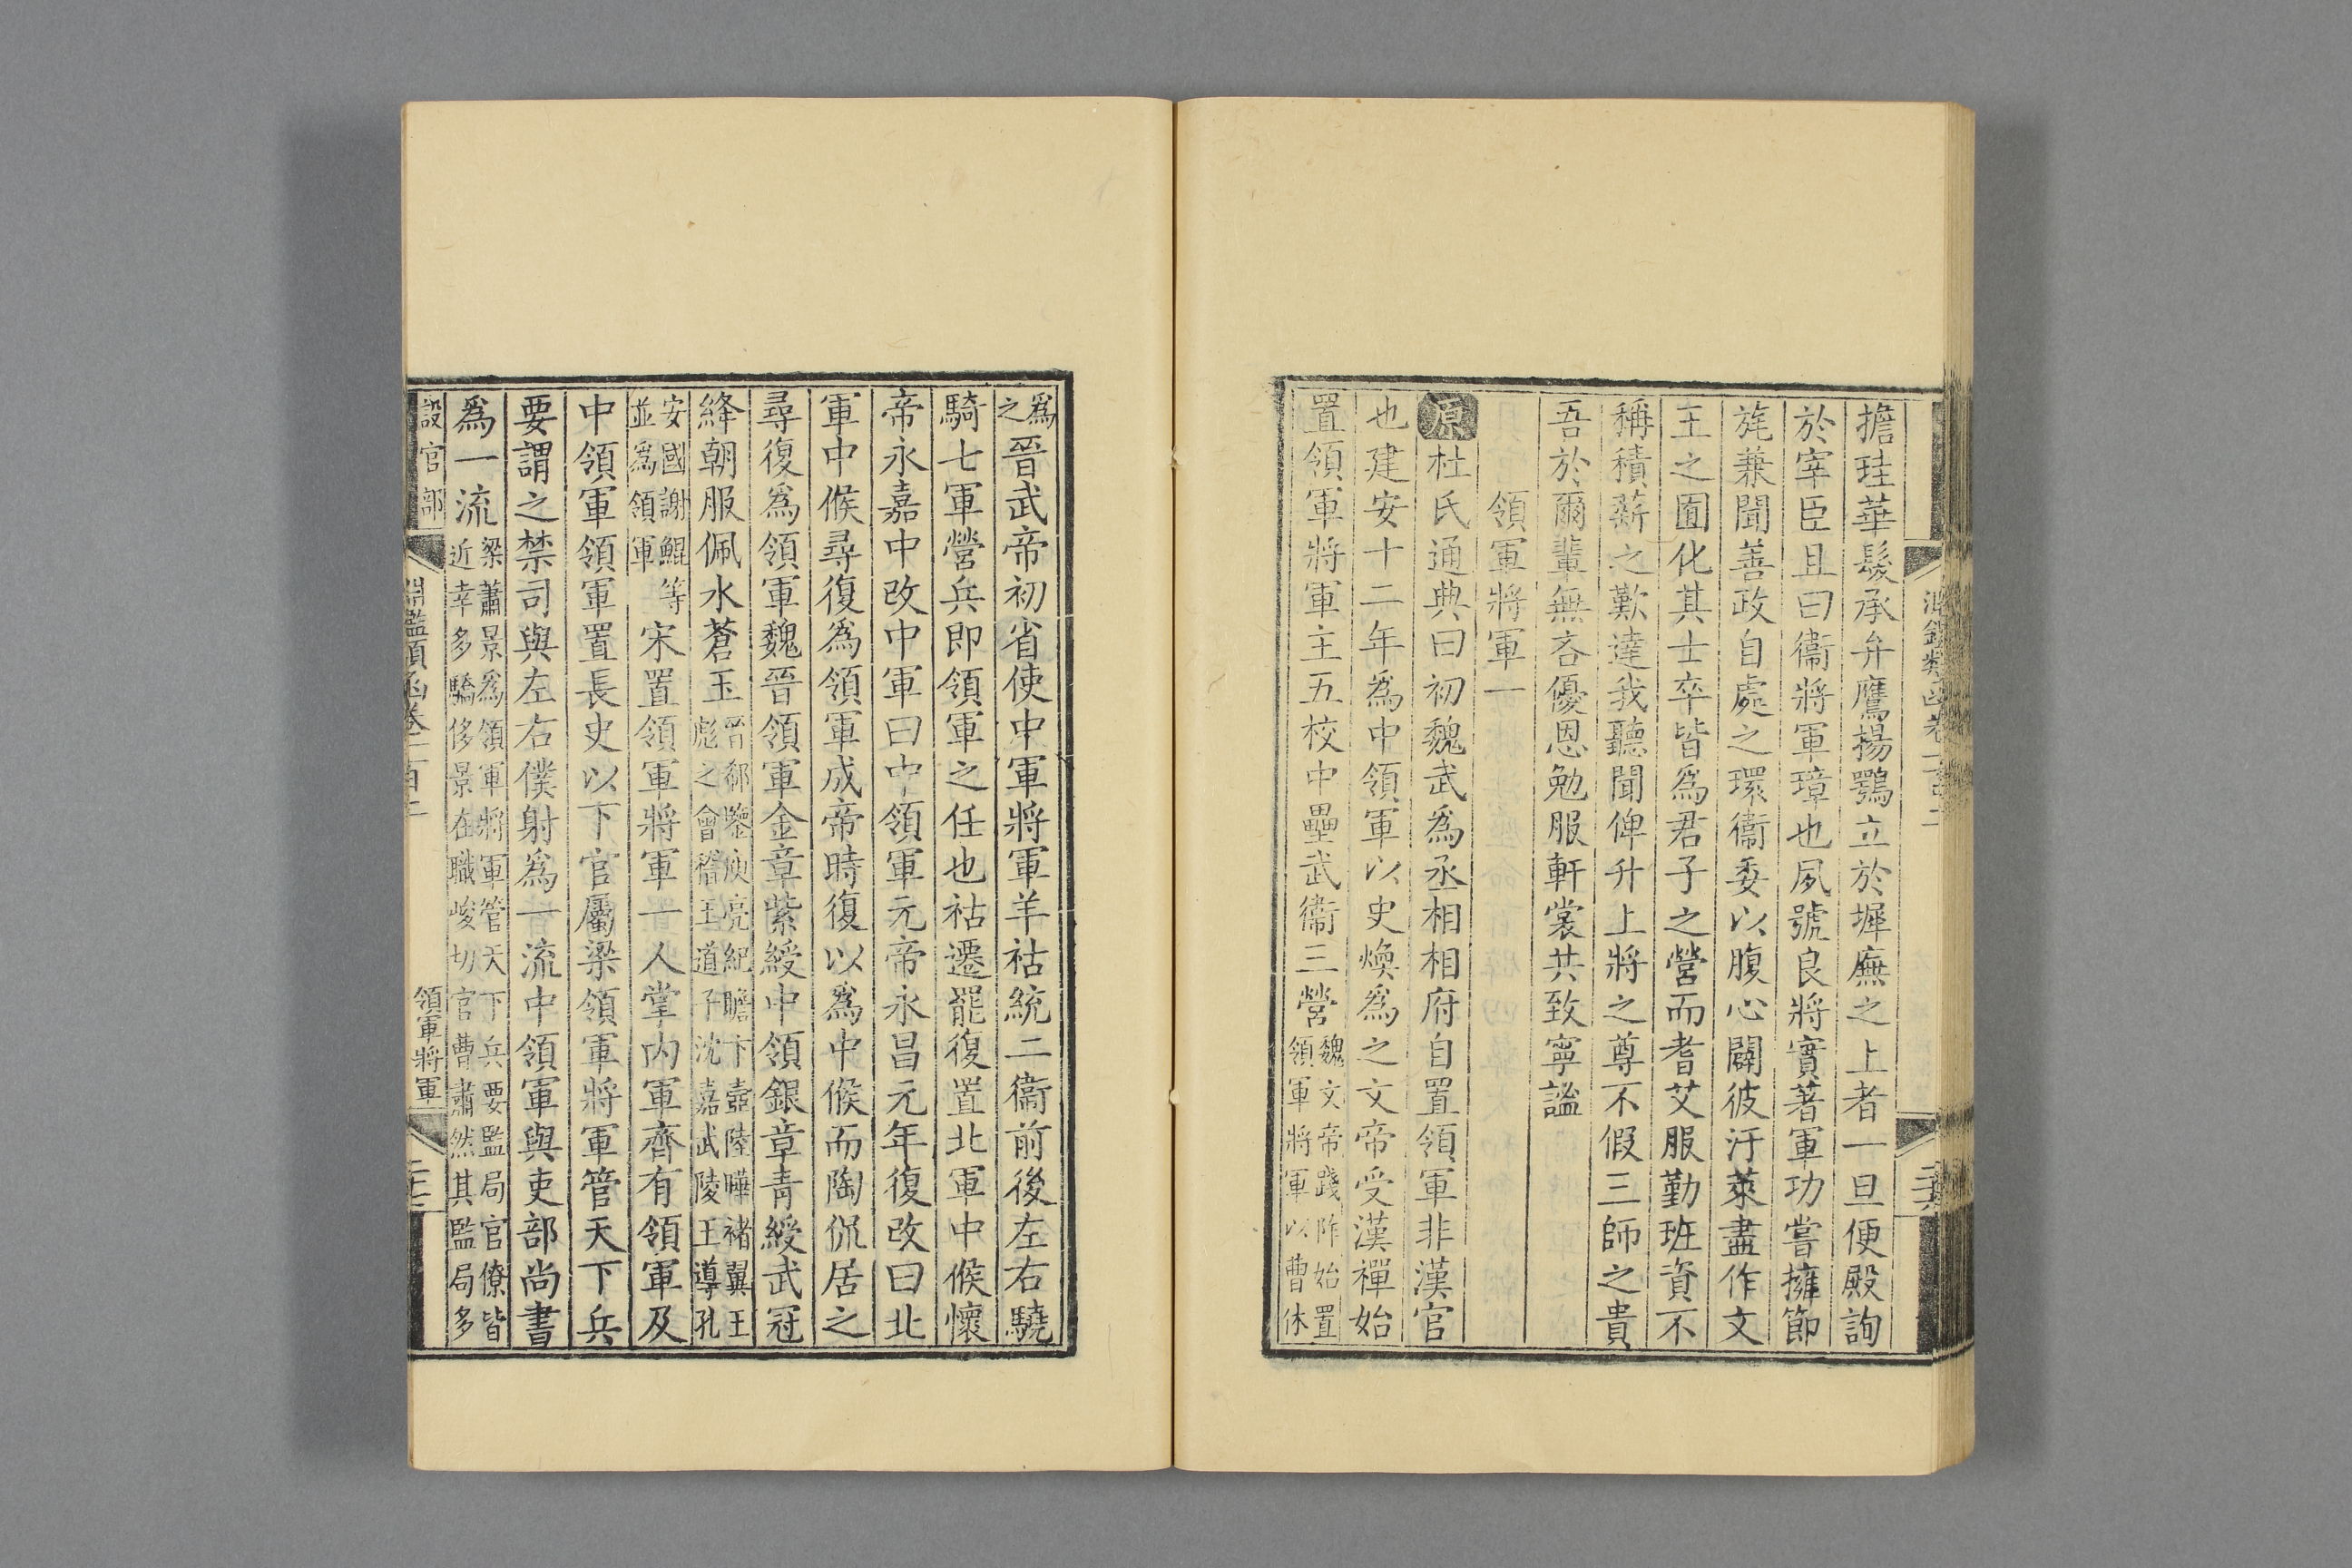 淵鑑類函卷一百二
擔珪華髮承弁鷹揚鶚立於墀廡之上者一旦便殿詢
於宰臣且曰衞將軍璋也夙號良將實著軍功嘗擁節
旄兼聞善政自處之環衞委以腹心闢彼汙萊盡作文
王之囿化其士卒皆爲君子之營而耆艾服勤班資不
稱積薪之歎達我聽聞俾升上將之尊不假三師之貴
吾於爾輩無吝優恩勉服軒裳共致寧謐
領軍將軍一
原杜氏通典曰初魏武爲丞相相府自置領軍非漢官
也建安十二年爲中領軍以史煥爲之文帝受漢禪始
置領軍將軍主五校中壘武衞三營魏文帝踐阼始置領軍將軍以曹休
爲之晉武帝初省使中軍將軍羊祜統二衞前後左右驍
騎七軍營兵即領軍之任也祜遷罷復置北軍中候懷
帝永嘉中改中軍曰中領軍元帝永昌元年復改曰北
軍中候尋復爲領軍成帝時復以爲中候而陶侃居之
尋復爲領軍魏晉領軍金章紫綬中領銀章青綬武冠
絳朝服佩水蒼玉晉郗鑒庾亮紀瞻卞壼陸曄褚翼王彪之會稽王道子沈嘉武陵王導孔
安國謝鯤等並爲領軍宋置領軍將軍一人掌內軍齊有領軍及
中領軍領軍置長史以下官屬梁領軍將軍管天下兵
要謂之禁司與左右僕射爲一流中領軍與吏部尚書
爲一流梁蕭景爲領軍將軍管天下兵要監局官僚皆近幸多驕侈景在職峻切官曹肅然其監局多
設官部 淵鑑類函卷一百二 領軍將軍